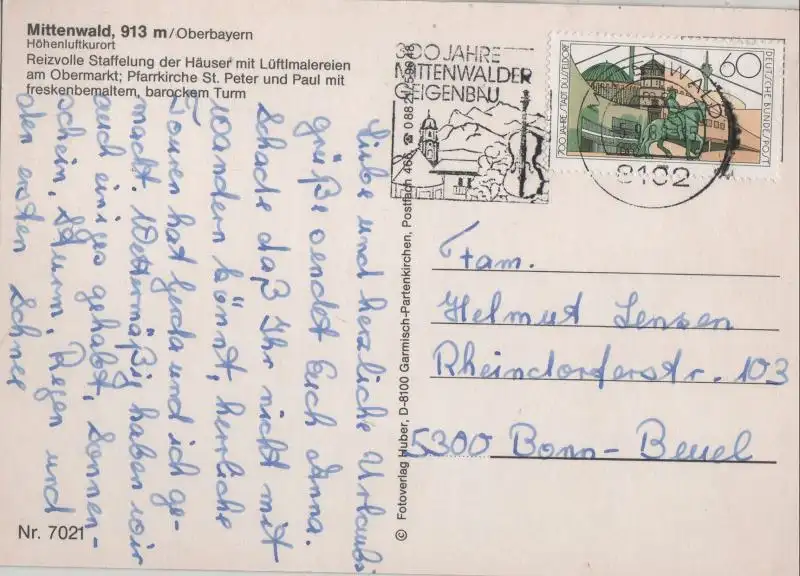 Mittenwald, 913 m/Oberbayern
Höhenluftkurort
Reizvolle Staffelung der Häuser mit Lüftlmalereien
am Obermarkt; Pfarrkirche St. Peter und Paul mit
freskenbemaltem, barockem Turm
300 JAHRE
MITTENWALDER
GEIGENBAU
60
DEUTSCHE BUNDESPOST
700 JAHRE STADT DÜSSELDORF
8102
Liebe und herzliche Urlaubs
grüße sendet Euch Anna.
Schade daß Ihr nicht mit
wandern könnt, herrliche
Touren hat Gerda und ich ge-
macht. Wettermäßig haben wir
auch einiges gehabt, Sonnen-
schein, Sturm, Regen und
den ersten Schnee
© Fotoverlag Huber, D-8100 Garmisch-Partenkirchen, Postfach 466, ☎ 08821/
Fam.
Helmut Lensen
Rheindorferstr. 103
5300 Bonn-Beuel
Nr. 7021